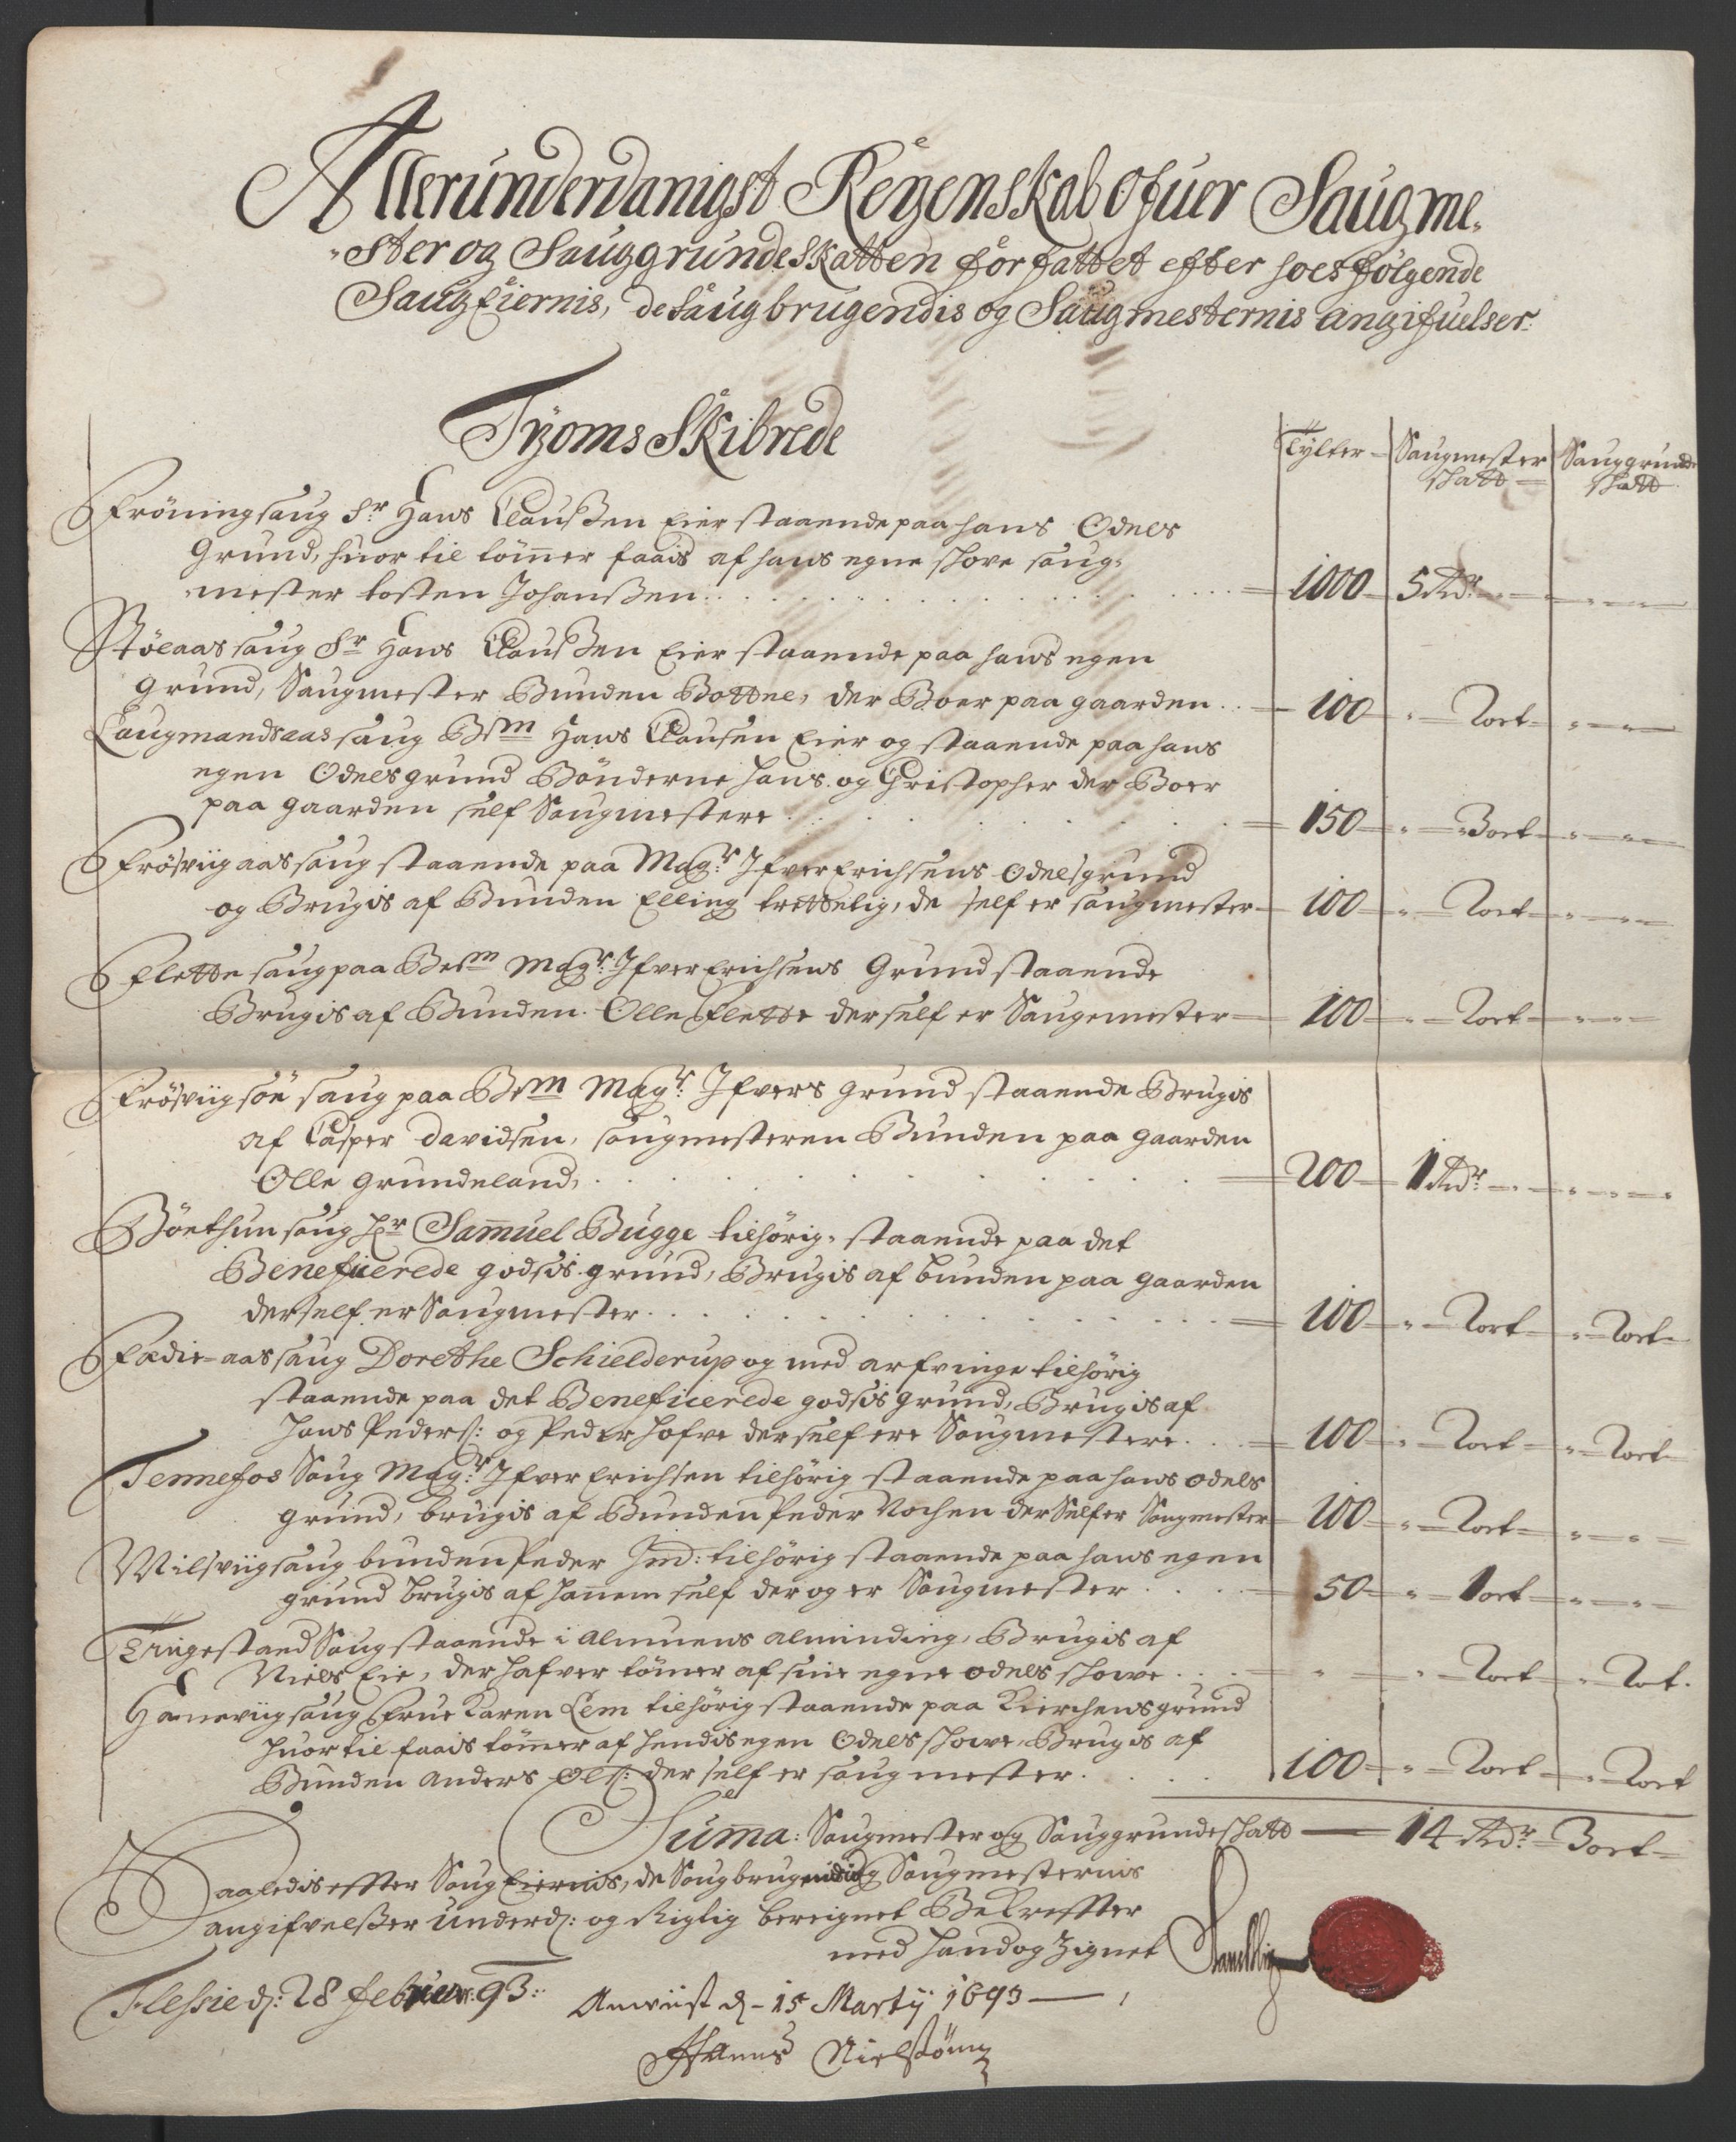 Allerunderdanigst Regenskab Ofuer Saugme,
ster og Sauggrundeskatten forfattet efter hoesfølgende
SaugEiernis, de Saugbrugendis og Saugmesternis angifuelser:
Tyoms Skibrede
Tylter Saugmester skatt Sauggrunde skatt
Frøningsaug Sr Hans Claussen Eier staaende paa hans Odels
Grund, huor til tömer faais af hans egne skove saug-
mester tosten Johanssen. 1000 5 Rdr
Stølaas saug Sr Hans Claussen Eier staaende paa hans egen
Grund, Saugmester Bunden Bottne, der Boer paa gaarden 100 2 ort
Laugmandsaas saug Bem Hans Clausen Eier og staaende paa hans
egen Odels grund Bönderne hans og Christopher der Boer
paa gaarden self Saugmestere 150 3 ort
Frösviigaas saug staaende paa Magr: Ifver Erichsens Odelsgrund
og Brugis af Bunden Elling trettelig, de self er saugmester 100 2 ort
Flette saug paa Bem Magr: Ifver Erichsens Grund staaende
Brugis af Bunden Olle Flette der self er Saugemester 100 2 ort
Frösviig söe saug paa Bem Magr: Ifvers grund staaende Brugis
af Casper Davidsen, saugmesteren Bunden paa gaarden
Olle Grundeland, 200 1 Rdr
Böethun saug Hr Samuel Bugge tilhörig, staaende paa det
Beneficerede godsis grund, Brugis af bunden paa gaarden
der self er Saugmester 100 2 ort 2 ort
Fædie-aas saug Dorethe Schielderup og med arfvinge tilhörig
staaende paa det Beneficerede godsis grund, Brugis af
Hans Peders: og Peder Hofve der self ere Saugmestere 100 2 ort 2 ort
Tennefos Saug Magr: Ifver Erichsen tilhörig staaende paa hans odels
grund, brugis af Bunden Peder Nochen der Self er Saugmester 100 2 ort
Milsviig saug bunden Peder Ibid: tilhörig staaende paa hans egen
grund brugis af hanem self der og er Saugmester 50 1 ort
Tingestand Saug staaende i Almuens alminding, Brugis af
Niels Eie, der hafver tömer af sine egne odels skowe 2 ort 2 ort.
Hanneviig saug Frue Karen Lem tilhörig staaende paa Kierchens grund
huor til faais tömmer af hendis egen Odels skowe, Brugis af
Bunden Anders Ols: der self er saugmester 100 2 ort 2 ort
Suma: Saugmester og Sauggrundeskatt 14 Rdr 3 ort
Saaledis effter Saug Eiernis, de Saugbrugendis og Saugmesternis
angifvelsser Underd: og Rigtig bereignet Bekreffter
med Hand og Zignet
Flessie d: 28 februar: 93:
Anviist d - 15 Martij 1693
Hanns Nielssönn